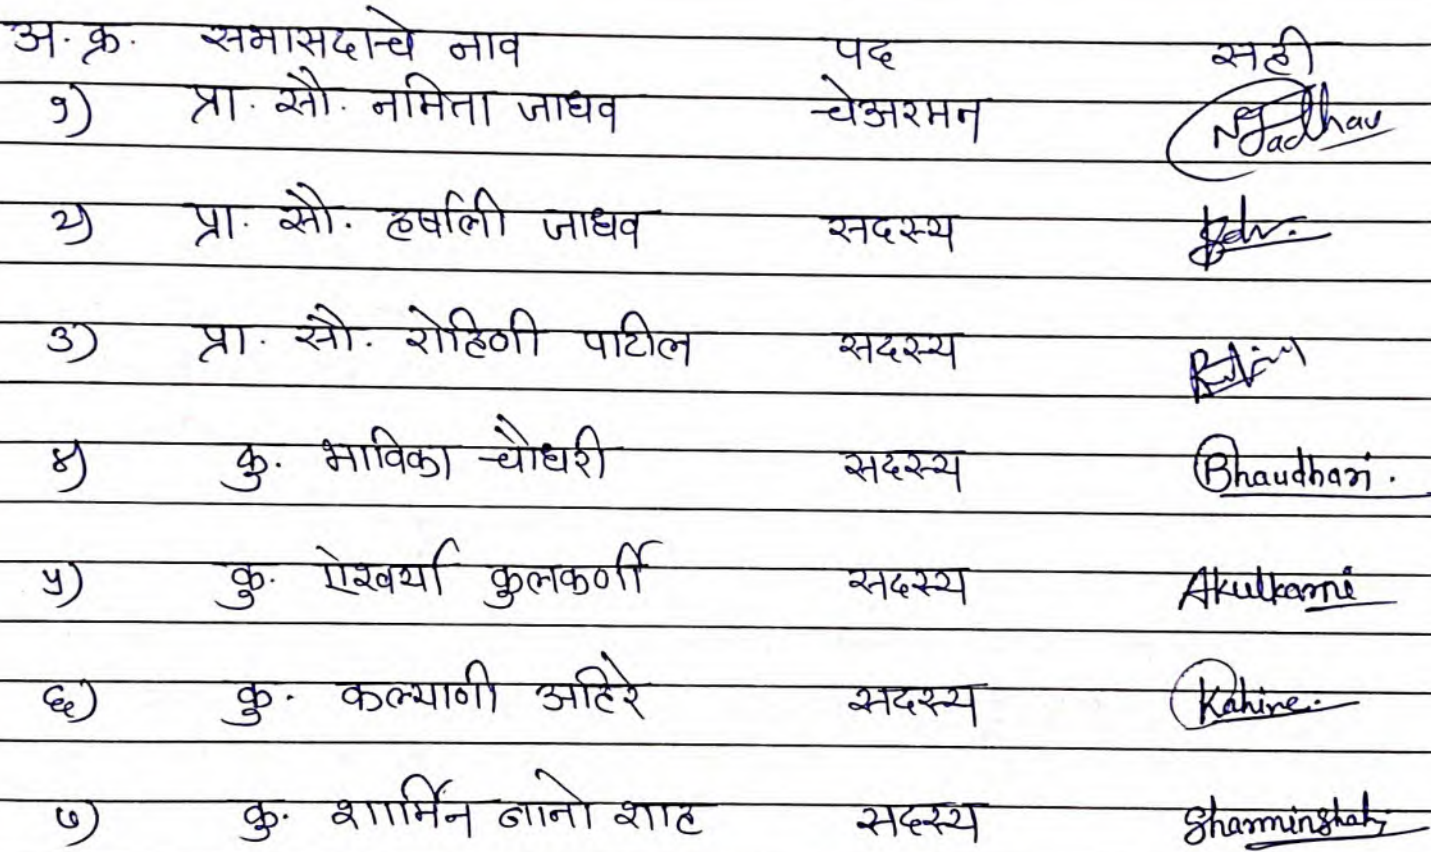 अ. क्र. सभासदाचे नाव पद सही
१) प्रा. सौ. नमिता जाधव चेअरमन NJadhav
२) प्रा. सौ. हर्षाली जाधव सदस्य
३) प्रा. सौ. रोहिणी पाटील सदस्य
४) कु. भाविका चौधरी सदस्य Bhaudhari.
५) कु. ऐश्वर्या कुलकर्णी सदस्य Akulkarni
६) कु. कल्याणी अहिरे सदस्य Kahire.
७) कु. शार्मिन बानो शाह सदस्य Sharminshah